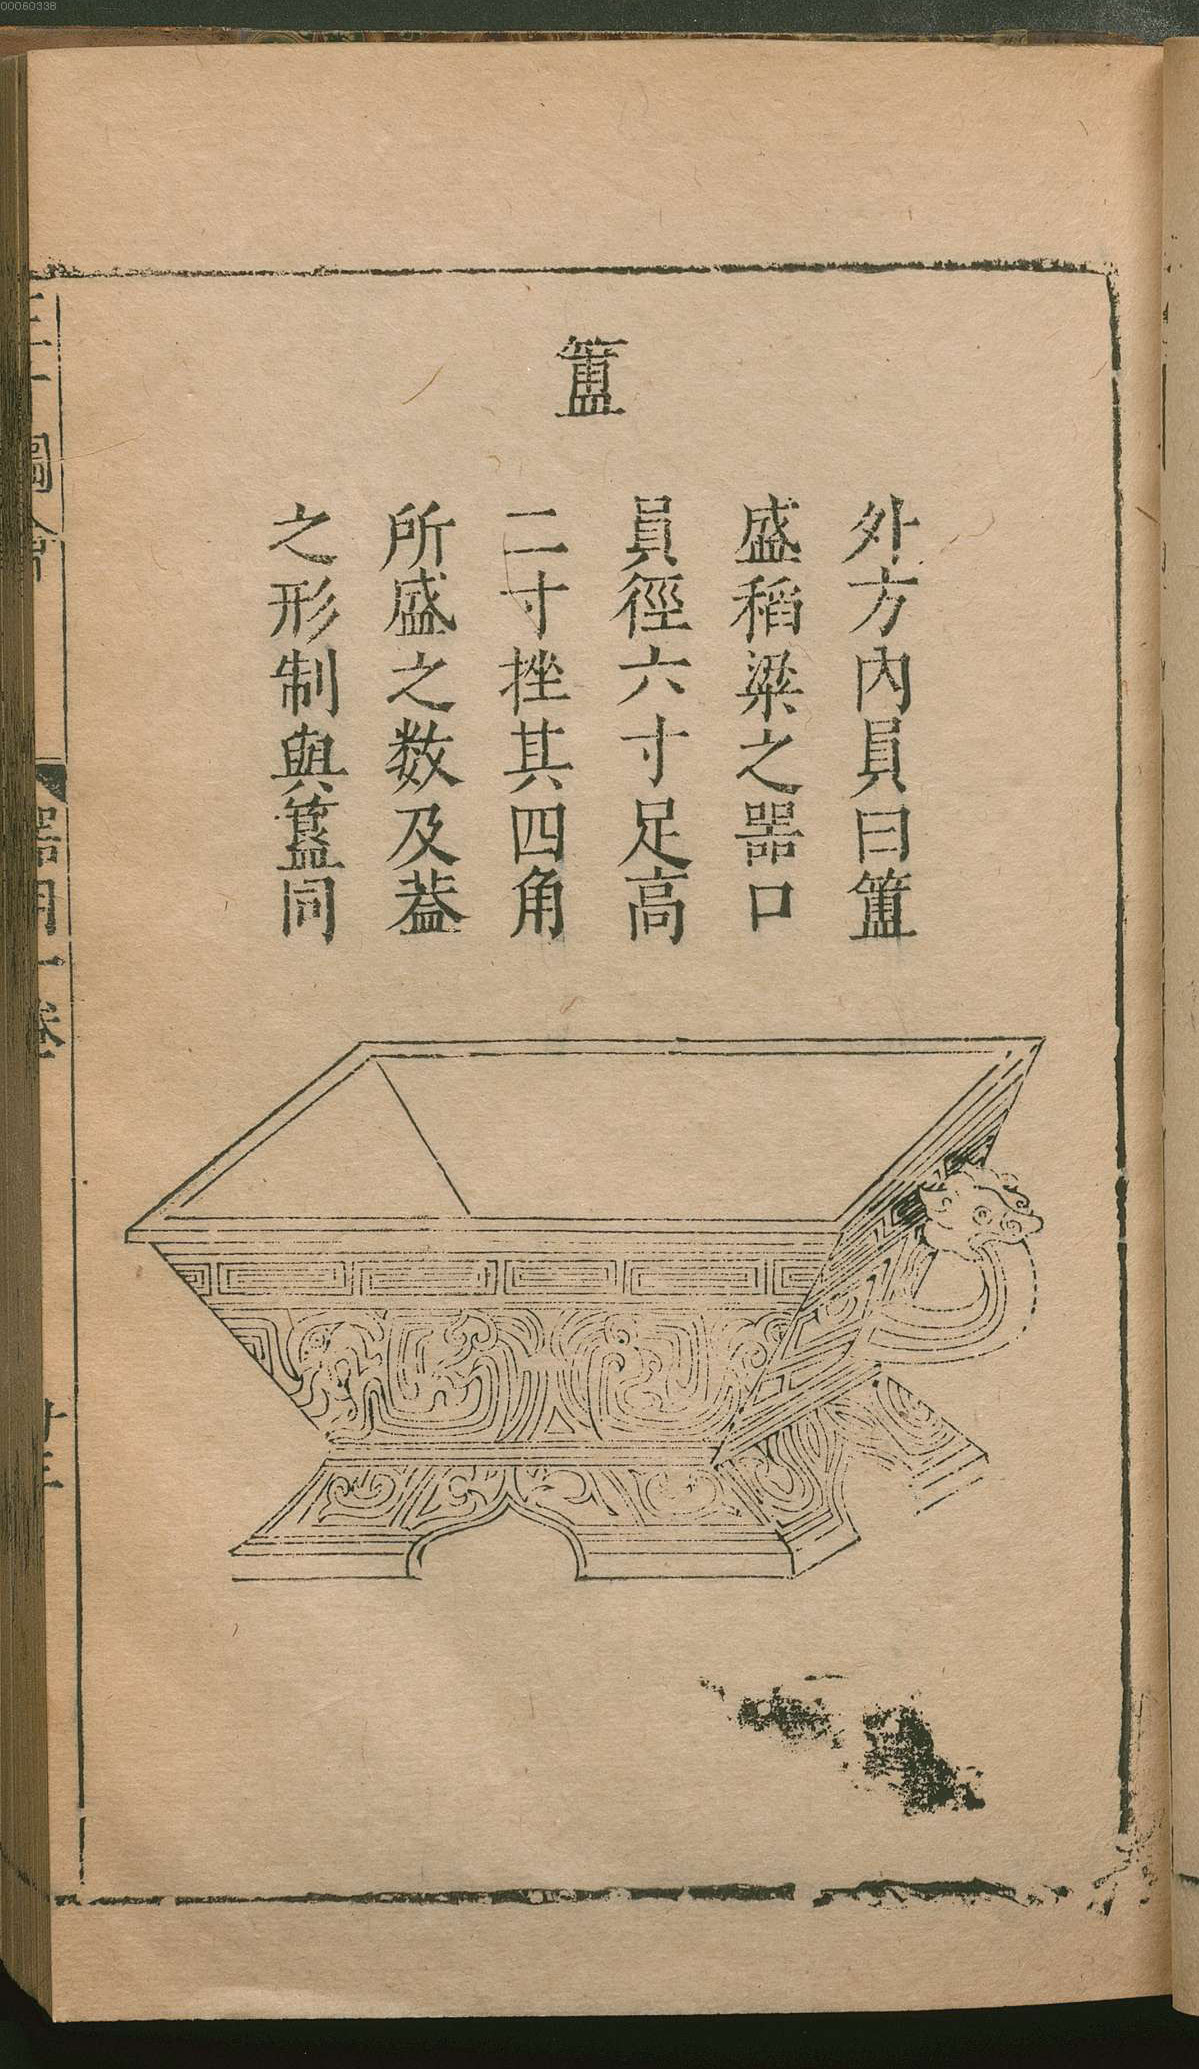 00060338
簠
外方內員曰簠
盛稻粱之器口
員徑六寸足高
二寸挫其四角
所盛之数及蓋
之形制與簋同
三才圖會
器用一卷